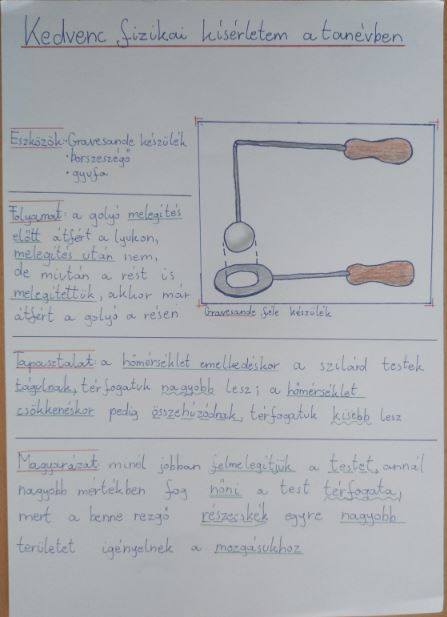 Kedvenc fizikai kísérletem a tanévben
Eszközök: Gravesande készülék
• borszeszégő
• gyufa
Folyamat: a golyó melegítés
előtt átfért a lyukon,
melegítés után nem,
de miután a rést is
melegítettük, akkor már
átfért a golyó a résen
Gravesande féle készülék
Tapasztalat: a hőmérséklet emelkedéskor a szilárd testek
tágulnak, térfogatuk nagyobb lesz; a hőmérséklet
csökkenéskor pedig összehúzódnak, térfogatuk kisebb lesz
Magyarázat minél jobban felmelegítjük a testet, annál
nagyobb mértékben fog nőni a test térfogata,
mert a benne rezgő részecskék egyre nagyobb
területet igényelnek a mozgásukhoz